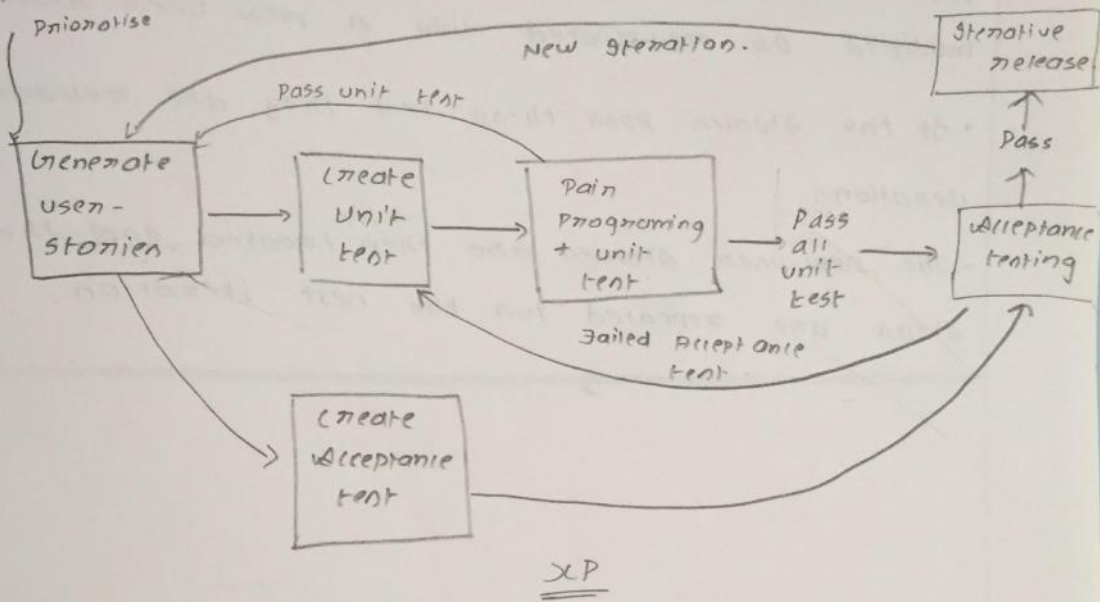 Prioratise
New Iteration.
Iterative
release
Pass unit test
Pass
Generate
user-
stories
Create
Unit
test
Pair
Programing
+ unit
test
Pass
all
unit
test
Acceptance
testing
Failed Acceptance
test
Create
Acceptance
test
XP